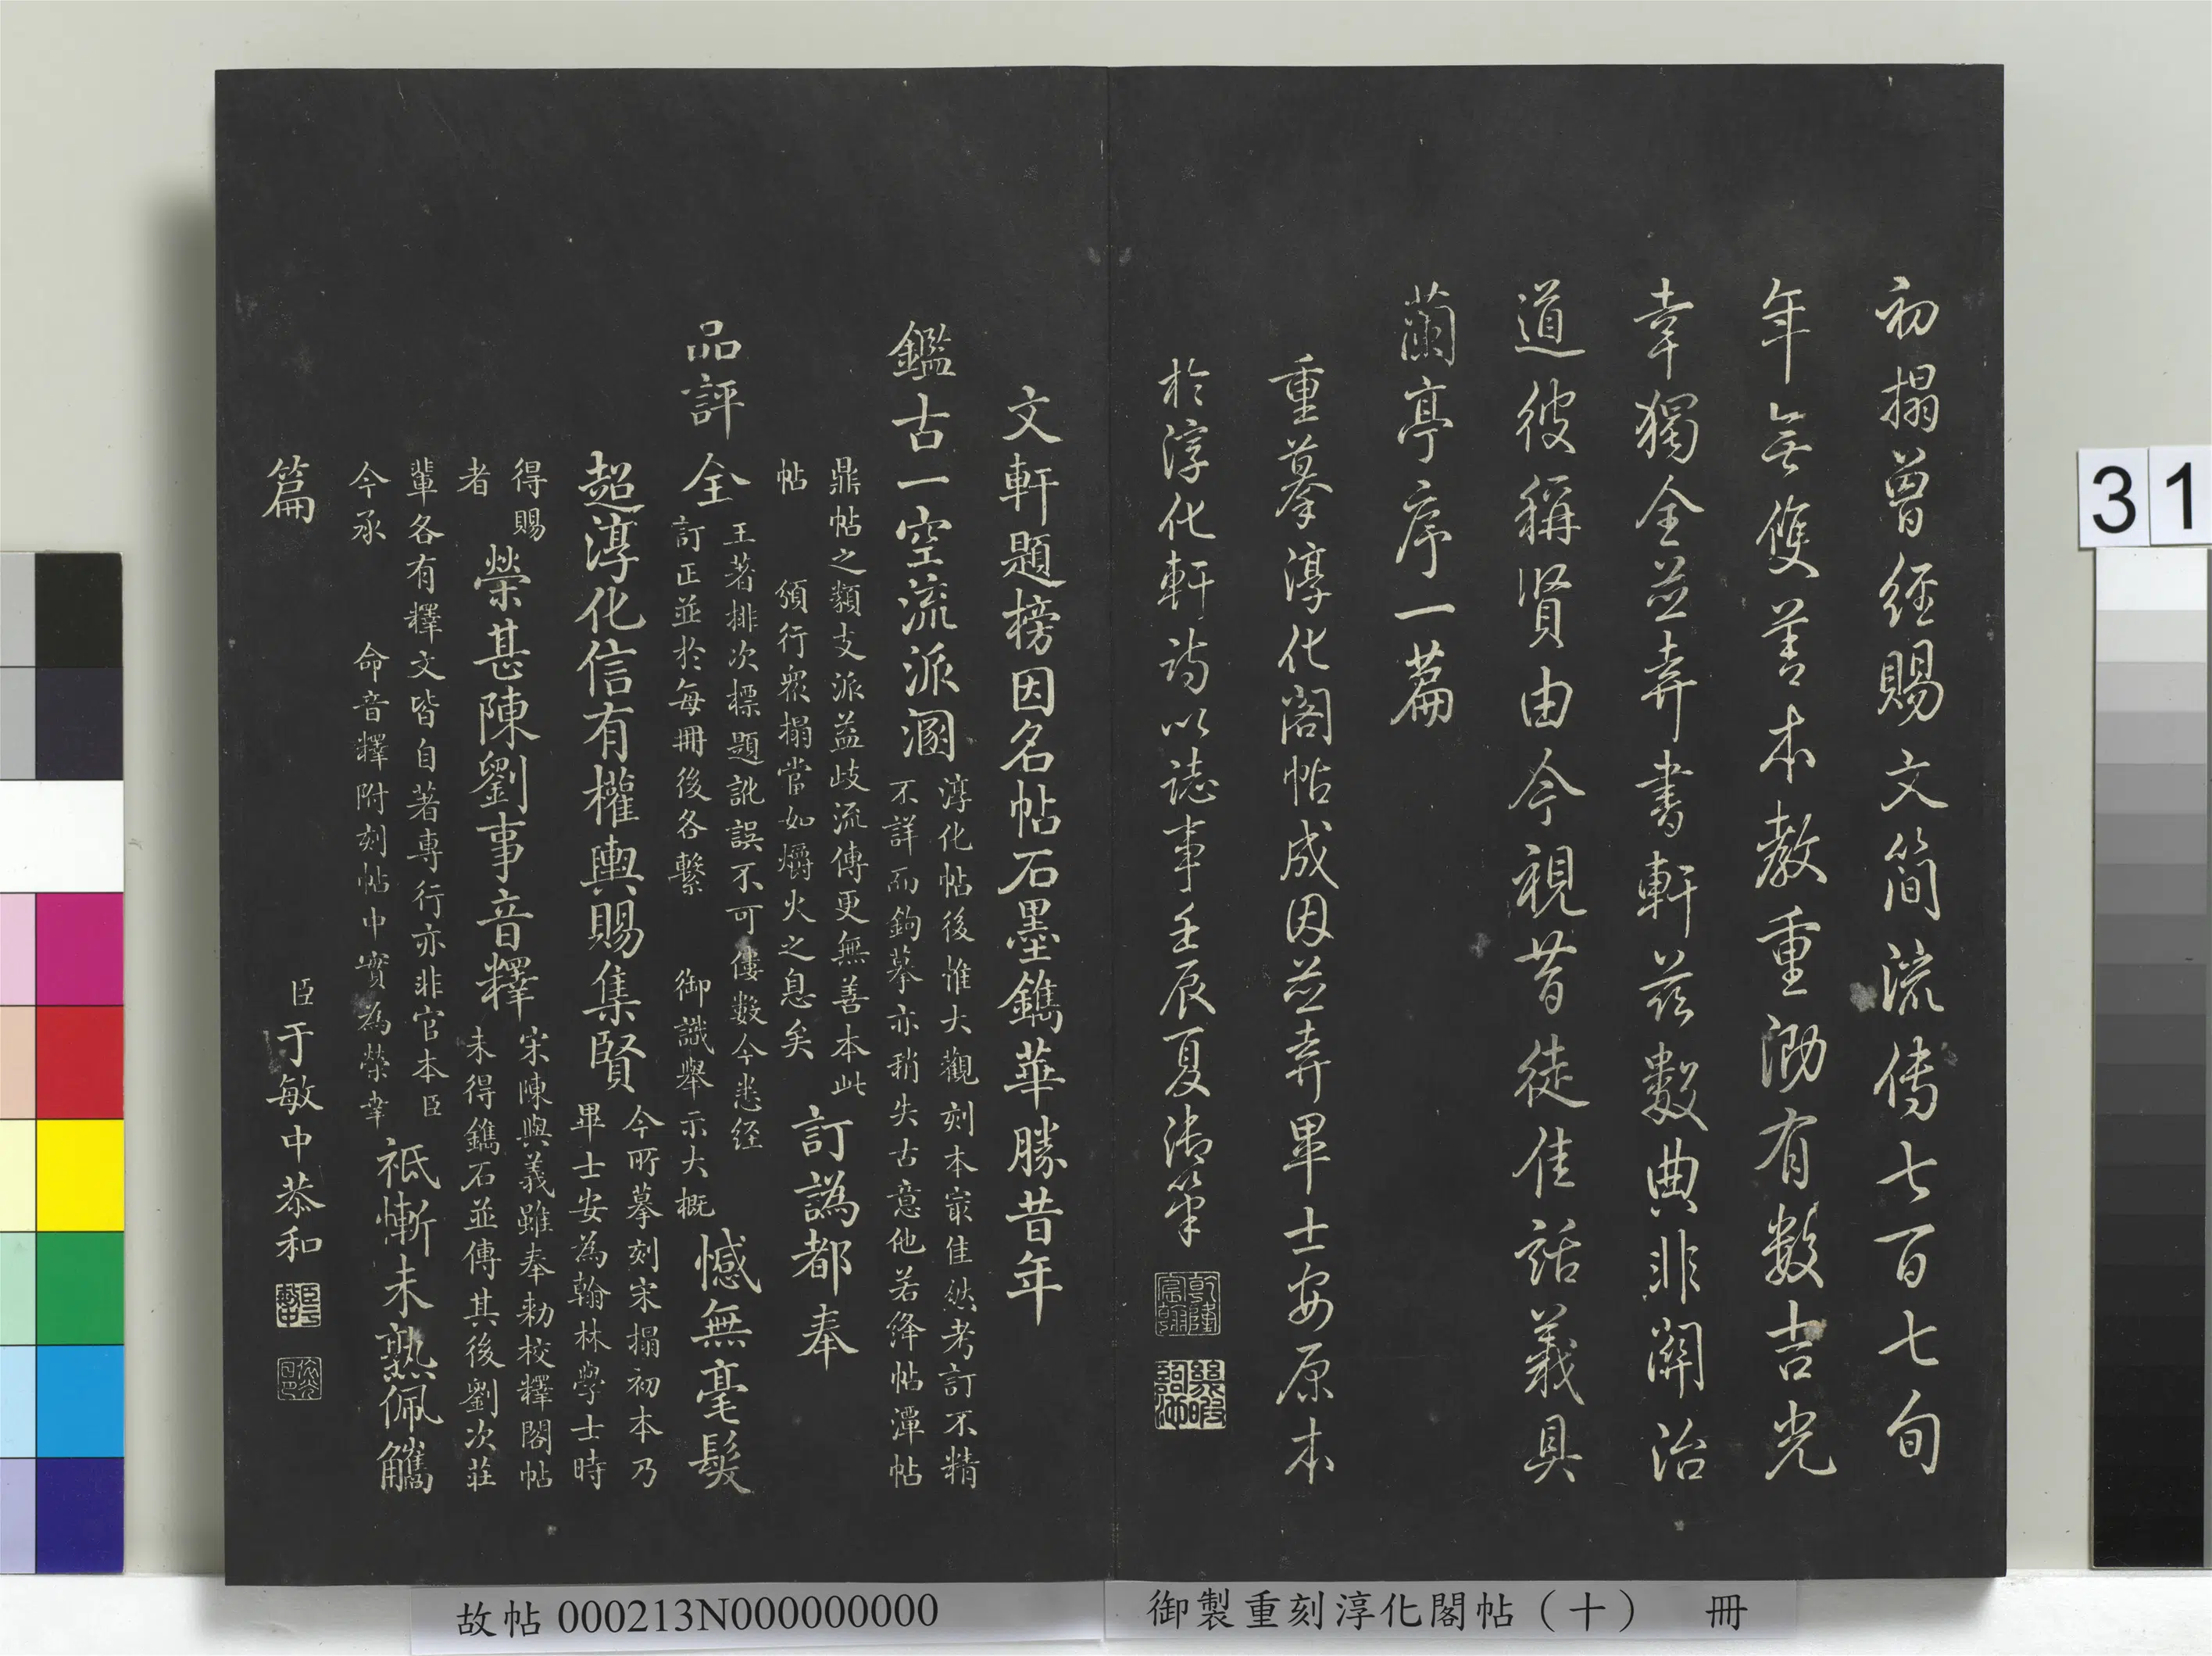 初搨曾經賜文簡流傳七百七旬
年無雙善本教重泐有數吉光
幸獨全並弆書軒茲數典非關治
道彼稱賢由今視昔徒佳話義具
蘭亭序一篇
重摹淳化閣帖成因並弆畢士安原本
於淳化軒詩以誌事壬辰夏御筆
乾隆宸翰
文軒題榜因名帖石墨鐫華勝昔年
鑑古一空流派溷
淳化帖後惟大觀刻本宷佳然考訂不精
不詳而鉤摹亦稍失古意他若絳帖潭帖
鼎帖之類支派益歧流傳更無善本此
帖 頒行眾搨當如爝火之息矣
訂譌都奉
品評全
王著排次標題訛誤不可僂數今悉經
訂正並於每冊後各繫 御識舉示大概
憾無毫髮
超淳化信有權輿賜集賢
今所摹刻宋搨初本乃
畢士安為翰林學士時
得賜
者
榮甚陳劉事音釋
宋陳與義雖奉勅校釋閣帖
未得鐫石並傳其後劉次莊
輩各有釋文皆自著專行亦非官本臣
今承 命音釋附刻帖中實為榮幸
祇慚未熟佩觿
篇
臣于敏中恭和
故帖 000213N000000000
御製重刻淳化閣帖（十） 冊
31